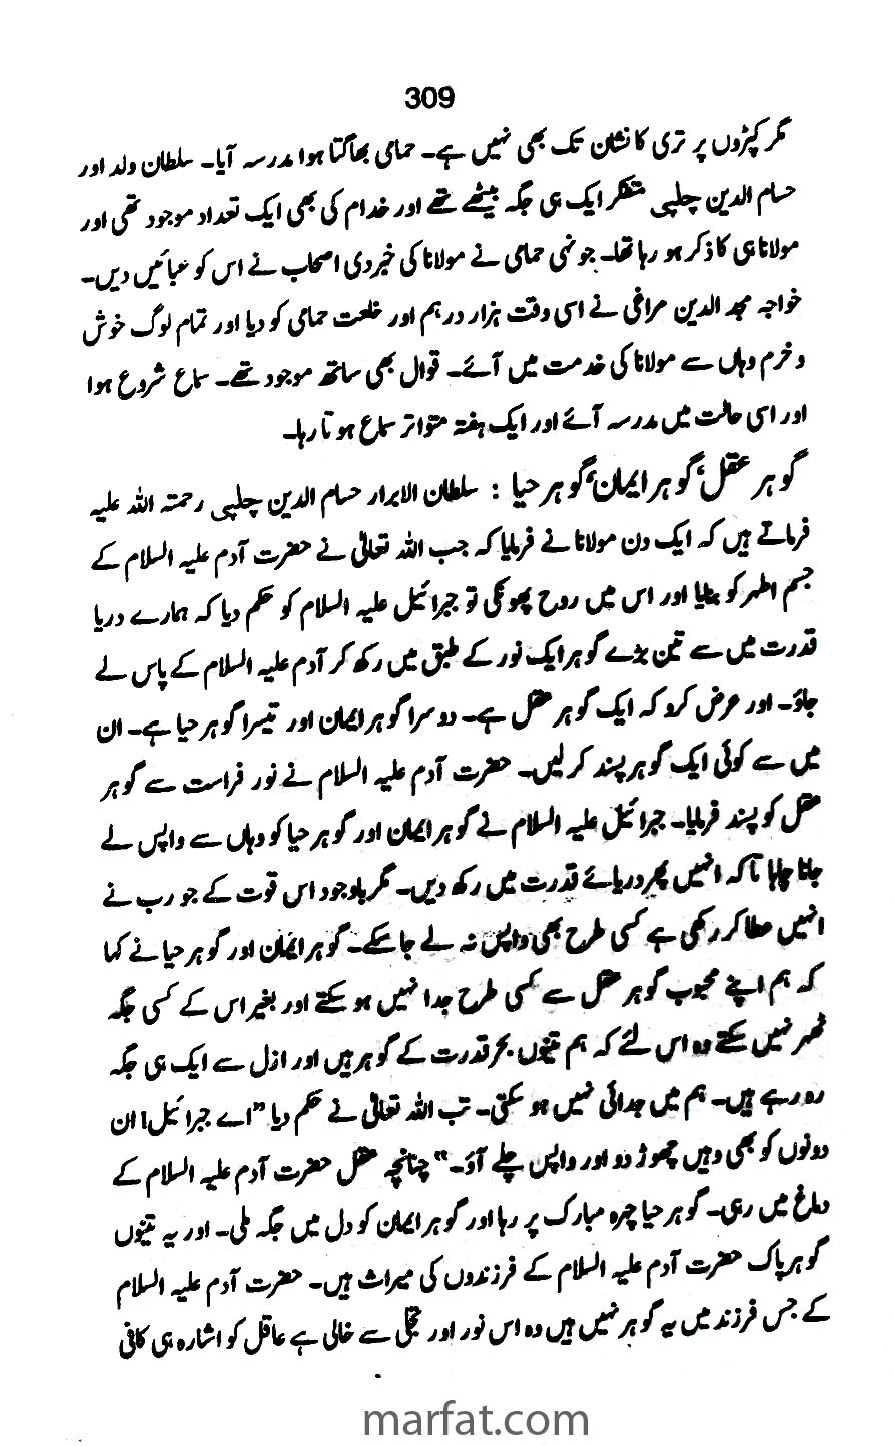 309
مگر کپڑوں پر تری کا نشان تک بھی نہیں ہے۔ حمامی بھاگتا ہوا مدرسہ آیا۔ سلطان ولد اور
حسام الدین چلپی متفکر ایک ہی جگہ بیٹھے تھے اور خدام کی بھی ایک تعداد موجود تھی اور
مولانا ہی کا ذکر ہو رہا تھا۔ جونہی حمامی نے مولانا کی خبر دی اصحاب نے اس کو عبائیں دیں۔
خواجہ مجد الدین مراغی نے اسی وقت ہزار درہم اور خلعت حمامی کو دیا اور تمام لوگ خوش
و خرم وہاں سے مولانا کی خدمت میں آئے۔ قوال بھی ساتھ موجود تھے۔ سماع شروع ہوا
اور اسی حالت میں مدرسہ آئے اور ایک ہفتہ متواتر سماع ہوتا رہا۔
گوہر عقل، گوہر ایمان، گوہر حیا : سلطان الابرار حسام الدین چلپی رحمتہ اللہ علیہ
فرماتے ہیں کہ ایک دن مولانا نے فرمایا کہ جب اللہ تعالیٰ نے حضرت آدم علیہ السلام کے
جسم اطہر کو بنایا اور اس میں روح پھونکی تو جبرائیل علیہ السلام کو حکم دیا کہ ہمارے دریا
قدرت میں سے تین بڑے گوہر ایک نور کے طبق میں رکھ کر آدم علیہ السلام کے پاس لے
جاؤ۔ اور عرض کرو کہ ایک گوہر عقل ہے۔ دوسرا گوہر ایمان اور تیسرا گوہر حیا ہے۔ ان
میں سے کوئی ایک گوہر پسند کر لیں۔ حضرت آدم علیہ السلام نے نور فراست سے گوہر
عقل کو پسند فرمایا۔ جبرائیل علیہ السلام نے گوہر ایمان اور گوہر حیا کو وہاں سے واپس لے
جانا چاہا تاکہ انہیں پھر دریائے قدرت میں رکھ دیں۔ مگر باوجود اس قوت کے جو رب نے
انہیں عطا کر رکھی ہے کسی طرح بھی واپس نہ لے جا سکے۔ گوہر ایمان اور گوہر حیا نے کہا
کہ ہم اپنے محبوب گوہر عقل سے کسی طرح جدا نہیں ہو سکتے اور بغیر اس کے کسی جگہ
ٹھہر نہیں سکتے وہ اس لئے کہ ہم تینوں بحر قدرت کے گوہر ہیں اور ازل سے ایک ہی جگہ
رہ رہے ہیں۔ ہم میں جدائی نہیں ہو سکتی۔ تب اللہ تعالیٰ نے حکم دیا ”اے جبرائیل! ان
دونوں کو بھی وہیں چھوڑ دو اور واپس چلے آؤ۔“ چنانچہ عقل حضرت آدم علیہ السلام کے
دماغ میں رہی۔ گوہر حیا چہرہ مبارک پر رہا اور گوہر ایمان کو دل میں جگہ ملی۔ اور یہ تینوں
گوہر پاک حضرت آدم علیہ السلام کے فرزندوں کی میراث ہیں۔ حضرت آدم علیہ السلام
کے جس فرزند میں یہ گوہر نہیں ہیں وہ اس نور اور تجلی سے خالی ہے عاقل کو اشارہ ہی کافی
marfat.com